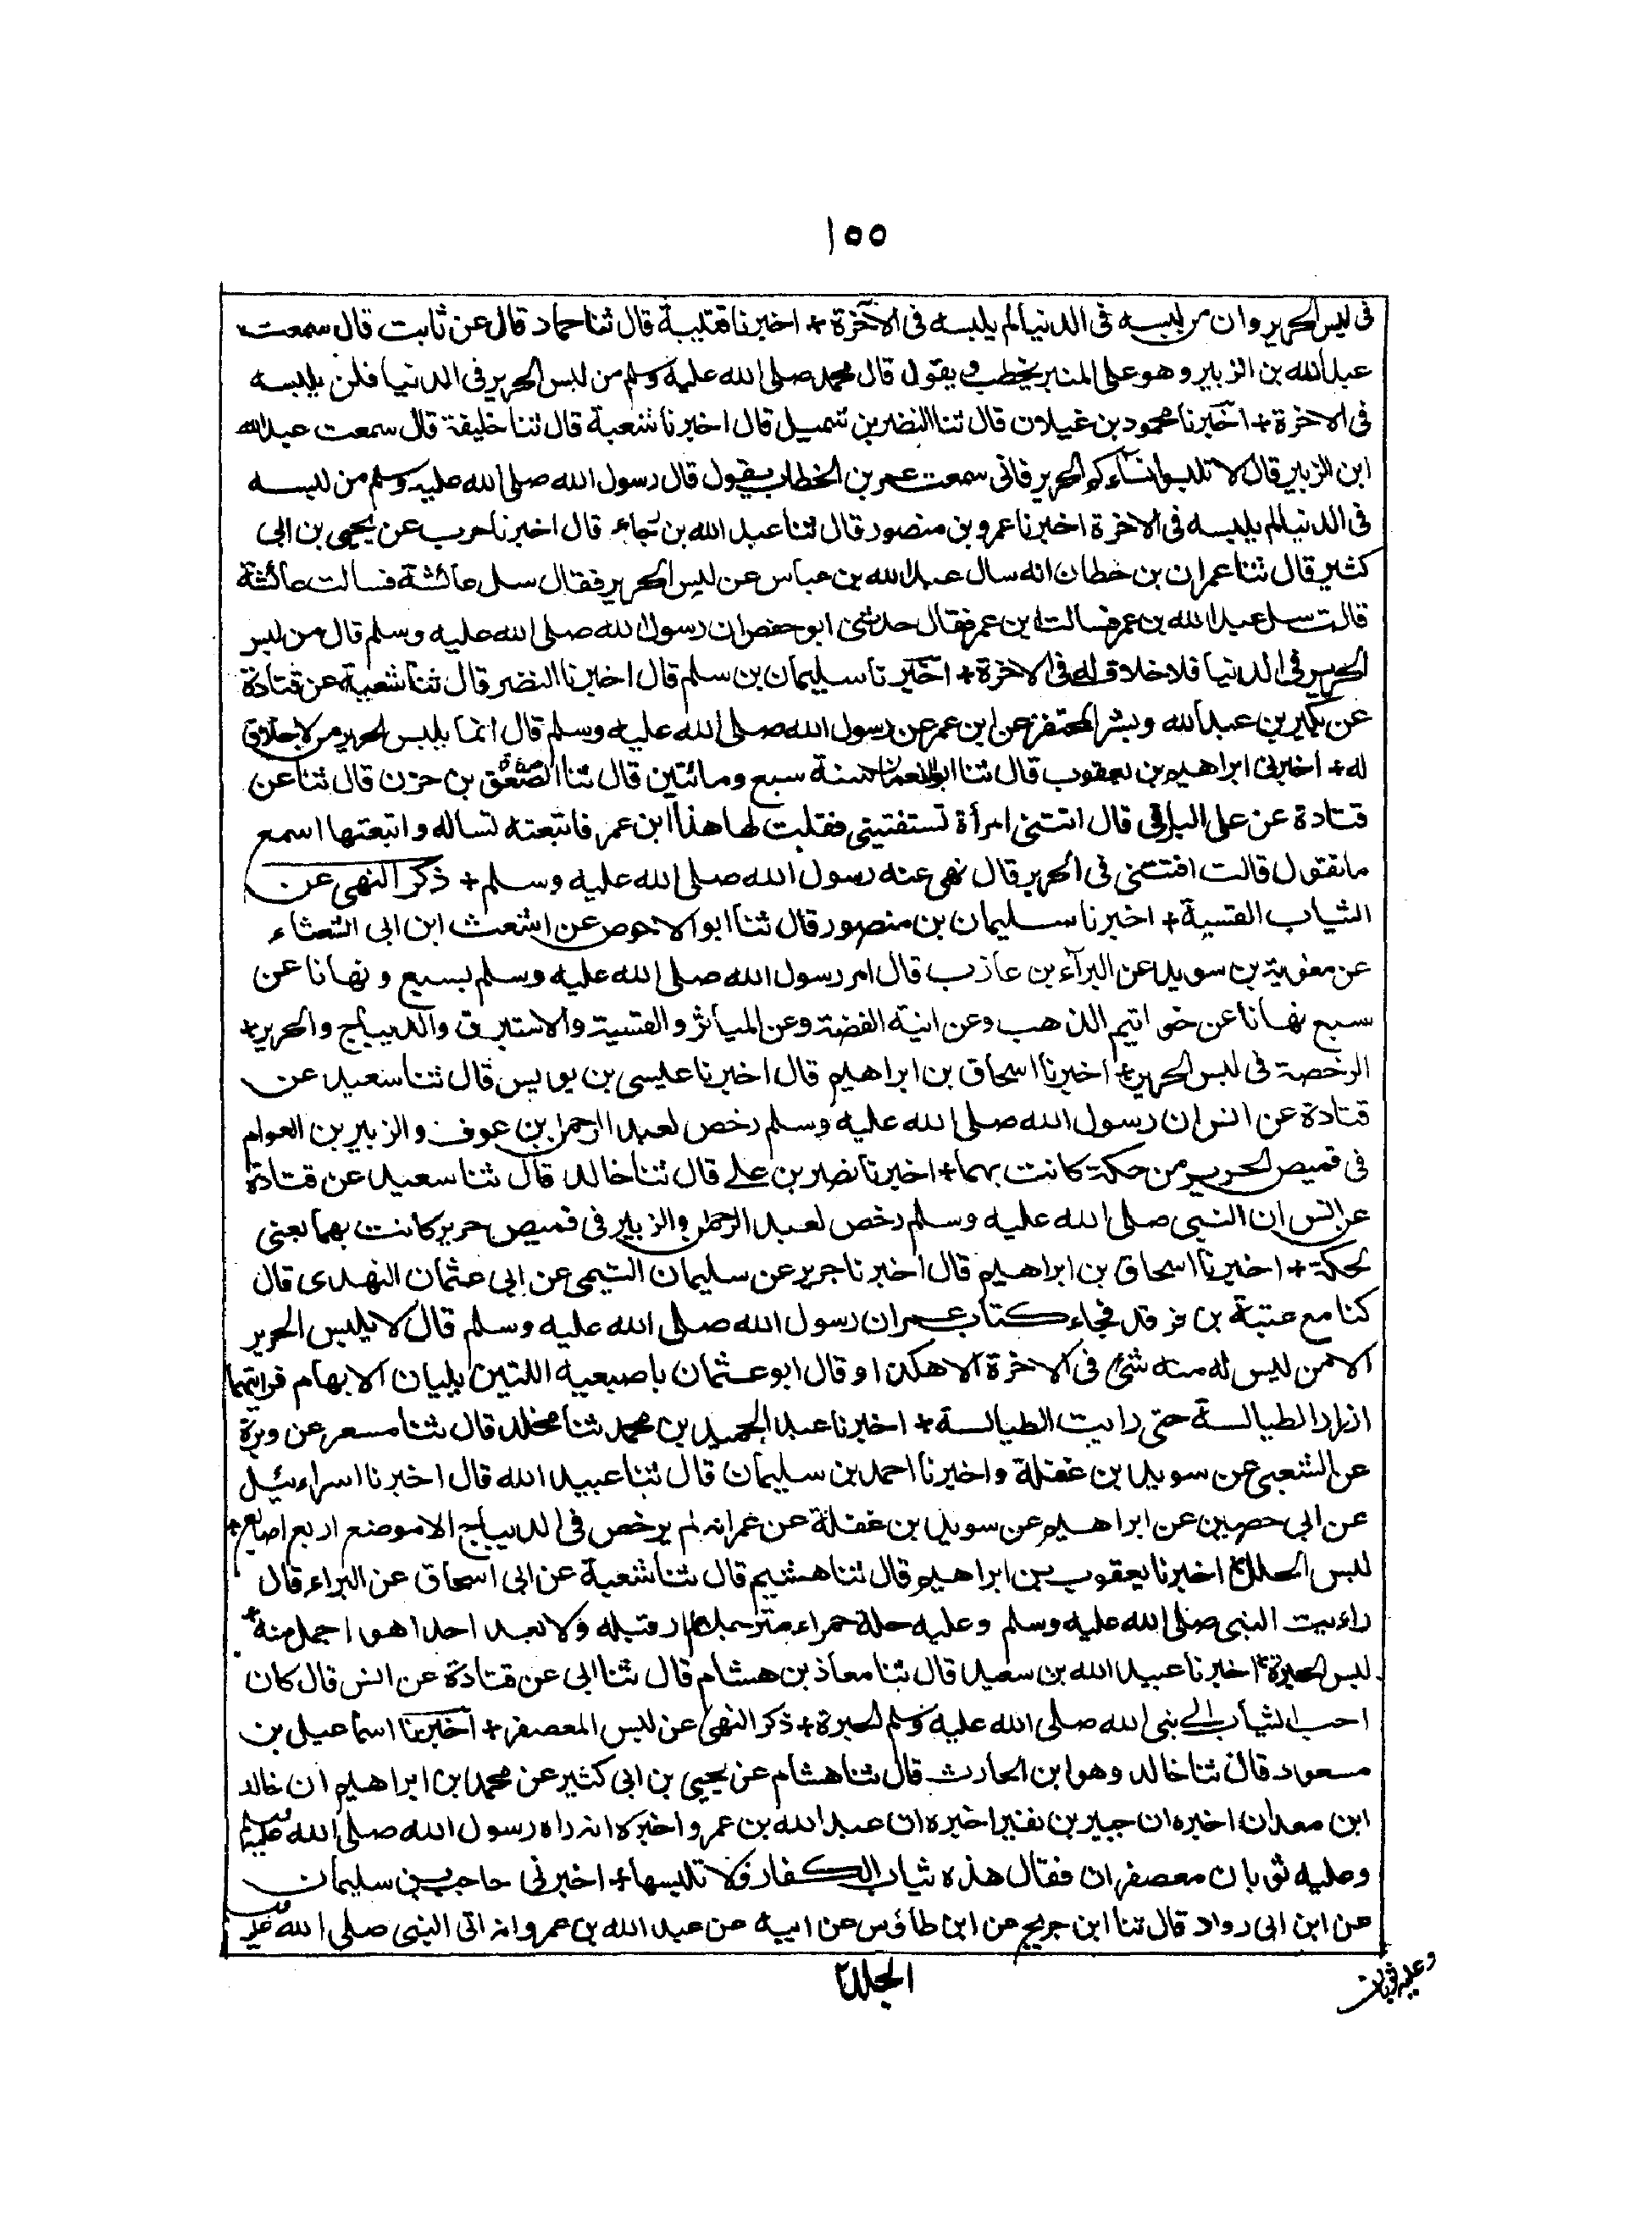 ١٥٥
فى لبس الحرير وان من لبسه فى الدنيا لم يلبسه فى الآخرة + اخبرنا قتيبة قال ثنا حماد قال عن ثابت قال سمعت
عبد الله بن الزبير وهو على المنبر يخطب ويقول قال محمد صلى الله عليه وسلم من لبس الحرير فى الدنيا فلن يلبسه
فى الاخرة + اخبرنا محمود بن غيلان قال ثنا النضر بن شميل قال اخبرنا شعبة قال ثنا خليفة قال سمعت عبد الله
ابن الزبير قال لا تلبسوا نساءكم الحرير فانى سمعت عمر بن الخطاب يقول قال رسول الله صلى الله عليه وسلم من لبسه
فى الدنيا لم يلبسه فى الاخرة اخبرنا عمرو بن منصور قال ثنا عبد الله بن رجاء قال اخبرنا حرب عن يحيى بن ابى
كثير قال ثنا عمران بن حطان انه سال عبد الله بن عباس عن لبس الحرير فقال سل عائشة فسالت عائشة
قالت سل عبد الله بن عمر فسالت ابن عمر فقال حدثنى ابو حفص ان رسول الله صلى الله عليه وسلم قال من لبس
الحرير فى الدنيا فلا خلاق له فى الاخرة + اخبرنا سليمان بن سلم قال اخبرنا النضر قال ثنا شعبة عن قتادة
عن بكير بن عبد الله وبشر المحتفز عن ابن عمر عن رسول الله صلى الله عليه وسلم قال انما يلبس الحرير من لا خلاق
له + اخبرنى ابراهيم بن يعقوب قال ثنا ابو النعمان سنة سبع ومائتين قال ثنا الصعق بن حزن قال ثنا عن
قتادة عن على البارقى قال اتتنى امرأة تستفتينى فقلت لها هذا ابن عمر فاتبعته تساله واتبعتها اسمع
ما تقول قالت افتنى فى الحرير قال نهى عنه رسول الله صلى الله عليه وسلم + ذكر النهى عن
الثياب القسية + اخبرنا سليمان بن منصور قال ثنا ابو الاحوص عن اشعث ابن ابى الشعثاء
عن معوية بن سويد عن البرآء بن عازب قال امر رسول الله صلى الله عليه وسلم بسبع ونهانا عن
سبع نهانا عن خواتيم الذهب وعن انية الفضة وعن المياثر والقسية والاستبرق والديباج والحرير +
الرخصة فى لبس الحرير + اخبرنا اسحاق بن ابراهيم قال اخبرنا عيسى بن يونس قال ثنا سعيد عن
قتادة عن انس ان رسول الله صلى الله عليه وسلم رخص لعبد الرحمن بن عوف والزبير بن العوام
فى قميص الحرير من حكة كانت بهما + اخبرنا نصر بن على قال ثنا خالد قال ثنا سعيد عن قتادة
عن انس ان النبى صلى الله عليه وسلم رخص لعبد الرحمن والزبير فى قميص حرير كانت بهما يعنى
لحكة + اخبرنا اسحاق بن ابراهيم قال اخبرنا جرير عن سليمان التيمى عن ابى عثمان النهدى قال
كنا مع عتبة بن فرقد فجاء كتاب عمر ان رسول الله صلى الله عليه وسلم قال لا يلبس الحرير
الا من ليس له منه شئ فى الاخرة الا هكذا وقال ابو عثمان باصبعيه اللتين يليان الابهام فرايتهما
ازرار الطيالسة حتى رايت الطيالسة + اخبرنا عبد الحميد بن محمد ثنا مخلد قال ثنا مسعر عن وبرة
عن الشعبى عن سويد بن غفلة واخبرنا احمد بن سليمان قال ثنا عبيد الله قال اخبرنا اسراءئيل
عن ابى حصين عن ابراهيم عن سويد بن غفلة عن عمر انه لم يرخص فى الديباج الا موضع اربع اصابع +
لبس الحلل + اخبرنا يعقوب بن ابراهيم قال ثنا هشيم قال ثنا شعبة عن ابى اسحاق عن البراء قال
راءيت النبى صلى الله عليه وسلم وعليه حلة حمراء مترجلا لم ار قبله ولا بعد احدا هو اجمل منه +
لبس الحبرة + اخبرنا عبيد الله بن سعيد قال ثنا معاذ بن هشام قال ثنا ابى عن قتادة عن انس قال كان
احب الثياب الى نبى الله صلى الله عليه وسلم الحبرة + ذكر النهى عن لبس المعصفر + اخبرنا اسماعيل بن
مسعود قال ثنا خالد وهو ابن الحارث قال ثنا هشام عن يحيى بن ابى كثير عن محمد بن ابراهيم ان خالد
ابن معدان اخبره ان جبير بن نفير اخبره ان عبد الله بن عمرو اخبره انه راه رسول الله صلى الله عليه وسلم
وعليه ثوبان معصفران فقال هذه ثياب الكفار فلا تلبسها + اخبرنى حاجب بن سليمان
عن ابن ابى رواد قال ثنا ابن جريج عن ابن طاؤس عن ابيه عن عبد الله بن عمرو انه اتى النبى صلى الله عليه وسلم
وعليه ثوبان
الجلد٢